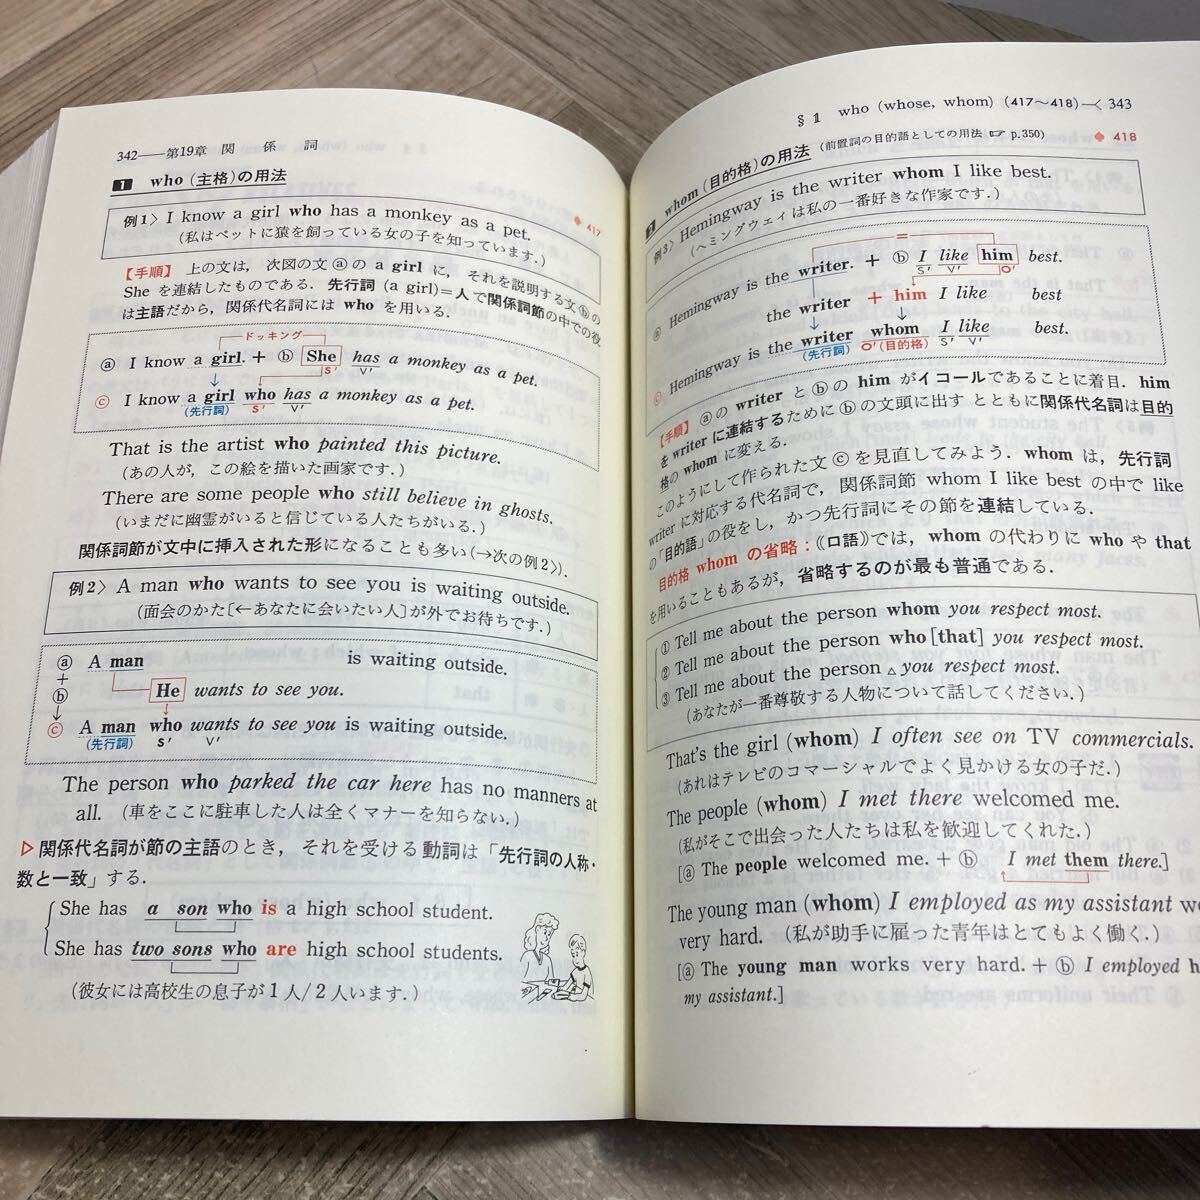 342——第19章 関 係 詞
1 who (主格)の用法
◆417
例1〉 I know a girl who has a monkey as a pet.
(私はペットに猿を飼っている女の子を知っています.)
【手順】 上の文は, 次図の文ⓐの a girl に, それを説明する文ⓑの
She を連結したものである. 先行詞 (a girl)=人で関係詞節の中での役
は主語だから, 関係代名詞には who を用いる.
ドッキング
ⓐ I know a girl. + ⓑ She has a monkey as a pet.
S′ V′
ⓒ I know a girl who has a monkey as a pet.
(先行詞) S′ V′
That is the artist who painted this picture.
(あの人が, この絵を描いた画家です.)
There are some people who still believe in ghosts.
(いまだに幽霊がいると信じている人たちがいる.)
関係詞節が文中に挿入された形になることも多い (→次の例2〉).
例2〉 A man who wants to see you is waiting outside.
(面会のかた[←あなたに会いたい人]が外でお待ちです.)
ⓐ A man is waiting outside.
+
ⓑ He wants to see you.
↓
ⓒ A man who wants to see you is waiting outside.
(先行詞) S′ V′
The person who parked the car here has no manners at
all. (車をここに駐車した人は全くマナーを知らない.)
▷関係代名詞が節の主語のとき, それを受ける動詞は「先行詞の人称・
数と一致」する.
She has a son who is a high school student.
She has two sons who are high school students.
(彼女には高校生の息子が1人/2人います.)
§1 who (whose, whom) (417〜418)—〈 343
2 whom (目的格)の用法 (前置詞の目的語としての用法 ☞ p.350)
◆418
例3〉 Hemingway is the writer whom I like best.
(ヘミングウェイは私の一番好きな作家です.)
=
ⓐ Hemingway is the writer. + ⓑ I like him best.
S′ V′ O′
the writer + him I like best
ⓒ Hemingway is the writer whom I like best.
(先行詞) O′(目的格) S′ V′
【手順】 ⓐの writer とⓑの him がイコールであることに着目. him
を writer に連結するためにⓑの文頭に出す とともに関係代名詞は目的
格の whom に変える.
このようにして作られた文ⓒを見直してみよう. whom は, 先行詞
writer に対応する代名詞で, 関係詞節 whom I like best の中で like
の「目的語」の役をし, かつ先行詞にその節を連結している.
目的格 whom の省略:《口語》では, whom の代わりに who や that
を用いることもあるが, 省略するのが最も普通である.
① Tell me about the person whom you respect most.
② Tell me about the person who[that] you respect most.
③ Tell me about the person △ you respect most.
(あなたが一番尊敬する人物について話してください.)
That's the girl (whom) I often see on TV commercials.
(あれはテレビのコマーシャルでよく見かける女の子だ.)
The people (whom) I met there welcomed me.
(私がそこで出会った人たちは私を歓迎してくれた.)
[ⓐ The people welcomed me. + ⓑ I met them there.]
The young man (whom) I employed as my assistant
very hard. (私が助手に雇った青年はとてもよく働く.)
[ⓐ The young man works very hard. + ⓑ I employed
my assistant.]